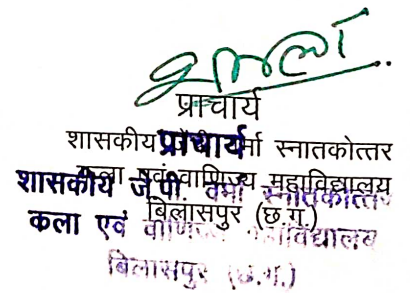 प्राचार्य
शासकीय जे.पी. वर्मा स्नातकोत्तर
कला एवं वाणिज्य महाविद्यालय
बिलासपुर (छ.ग.)
प्राचार्य
शासकीय जे.पी. वर्मा स्नातकोत्तर
कला एवं वाणिज्य महाविद्यालय
बिलासपुर (छ.ग.)